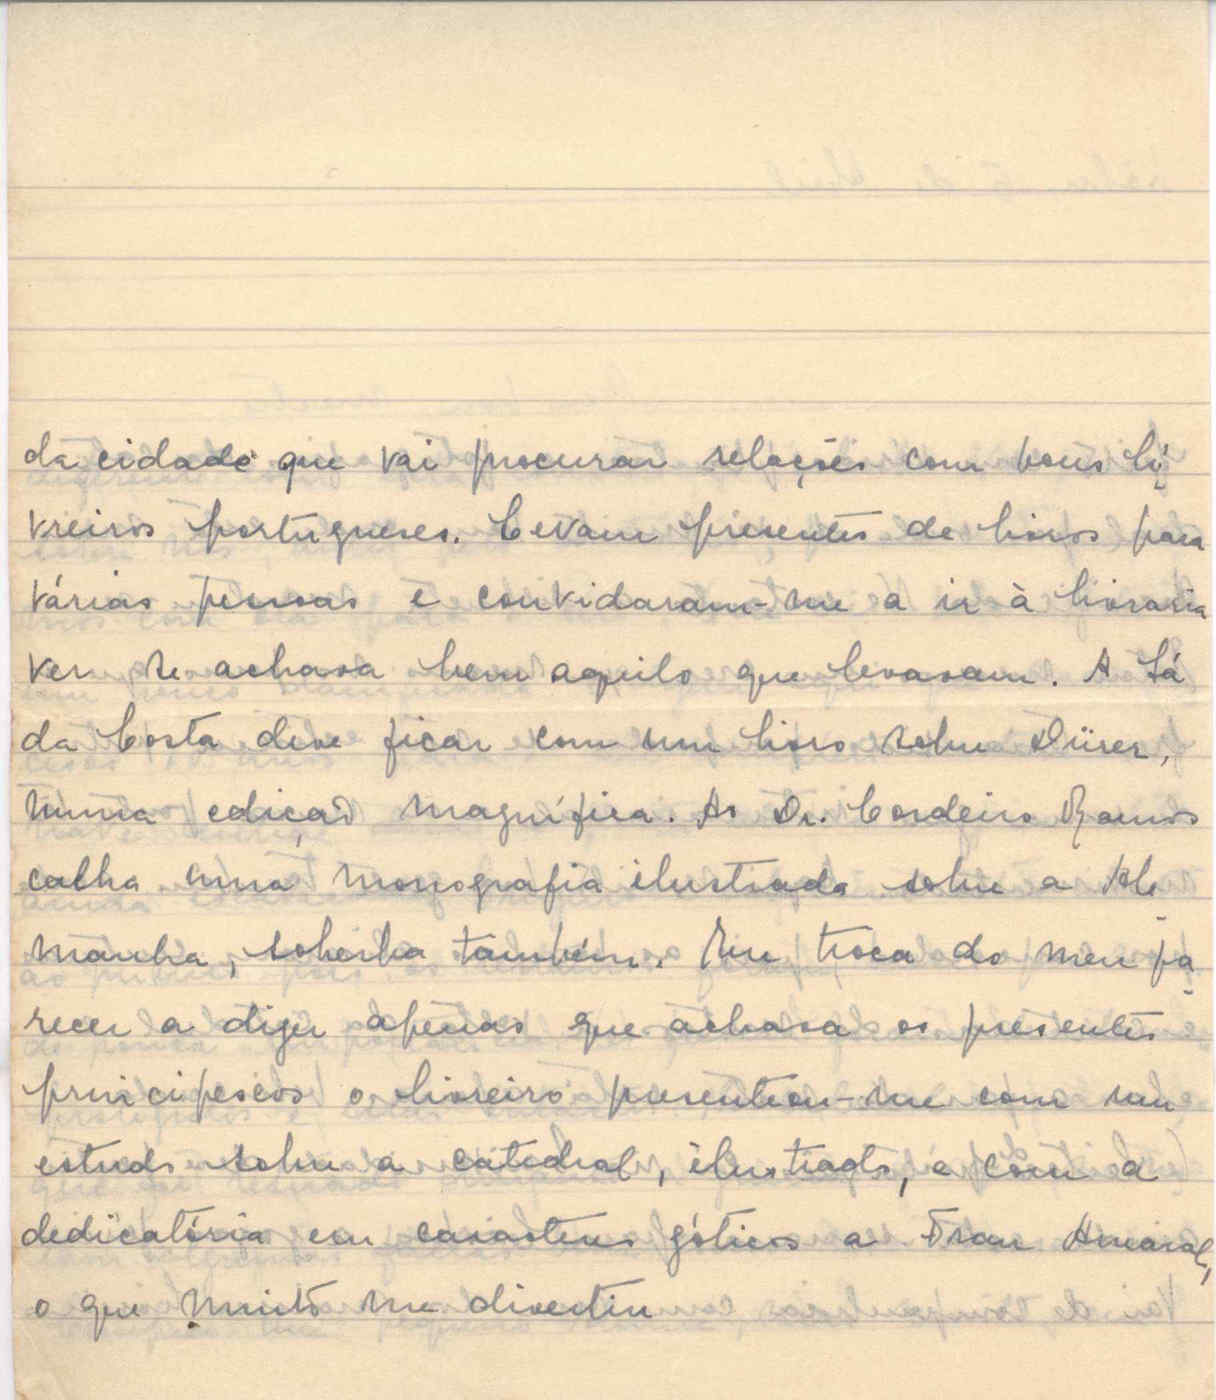 da cidade que vai procurar relações com bons li-
vreiros portugueses. Levam presentes de livros para
várias pessoas e convidaram-me a ir à livraria
ver se achava bem aquilo que levavam. A Sá
da Costa deve ficar com um livro sobre Dürer,
numa edição magnífica. Ao Dr. Cordeiro Ramos
calha uma monografia ilustrada sobre a Ale-
manha, soberba também. Em troca do meu pa-
recer a dizer apenas que achava os presentes
principescos o livreiro presenteou-me com um
estudo sobre a catedral, ilustrado, e com a
dedicatória em caracteres góticos a Frau Amaral,
o que muito me divertiu